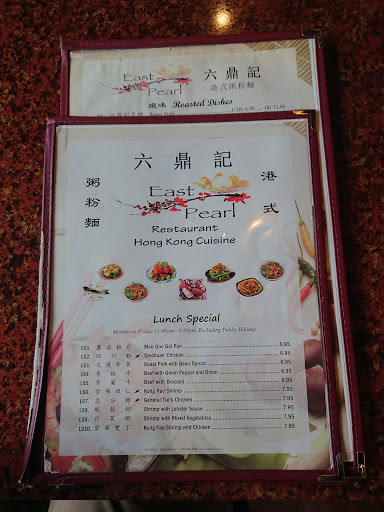 East
Pearl
六鼎記
港式粥粉麵
燒味 Roasted Dishes
六鼎記
粥粉麵
港式
East
Pearl
Restaurant
Hong Kong Cuisine
Lunch Special
Monday to Friday 11:00am-3:00pm, Excluding Public Holiday
LS1. 蘑菇雞片 Moo Goo Gai Pan 6.95
LS2. 四川雞 Szechuan Chicken 6.95
LS3. 叉燒芽菜 Roast Pork with Bean Sprout 6.95
LS4. 青椒牛 Beef with Green Pepper and Onion 6.95
LS5. 芥蘭牛 Beef with Broccoli 6.95
LS6. 宮保蝦仁 Kung Pao Shrimp 7.95
LS7. 左公雞 General Tso's Chicken 7.95
LS8. 蝦龍糊 Shrimp with Lobster Sauce 7.95
LS9. 什菜蝦 Shrimp with Mixed Vegetables 7.95
LS10. 宮保雙丁 Kung Pao Shrimp and Chicken 7.95